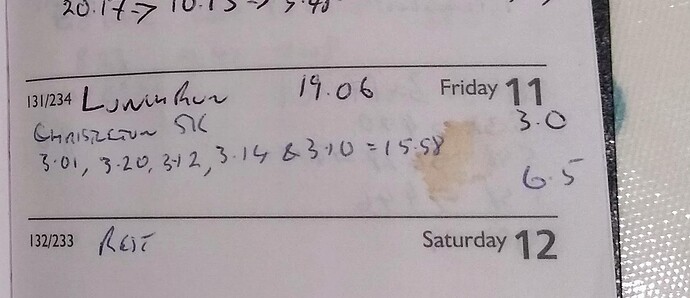 20.17 => 10.13 => 5.48
131/234 Lunch Run 19.06 Friday 11
5K 3.0
3.01, 3.20, 3.12, 3.14 & 3.10 = 15.58
6.5
132/233 REST Saturday 12